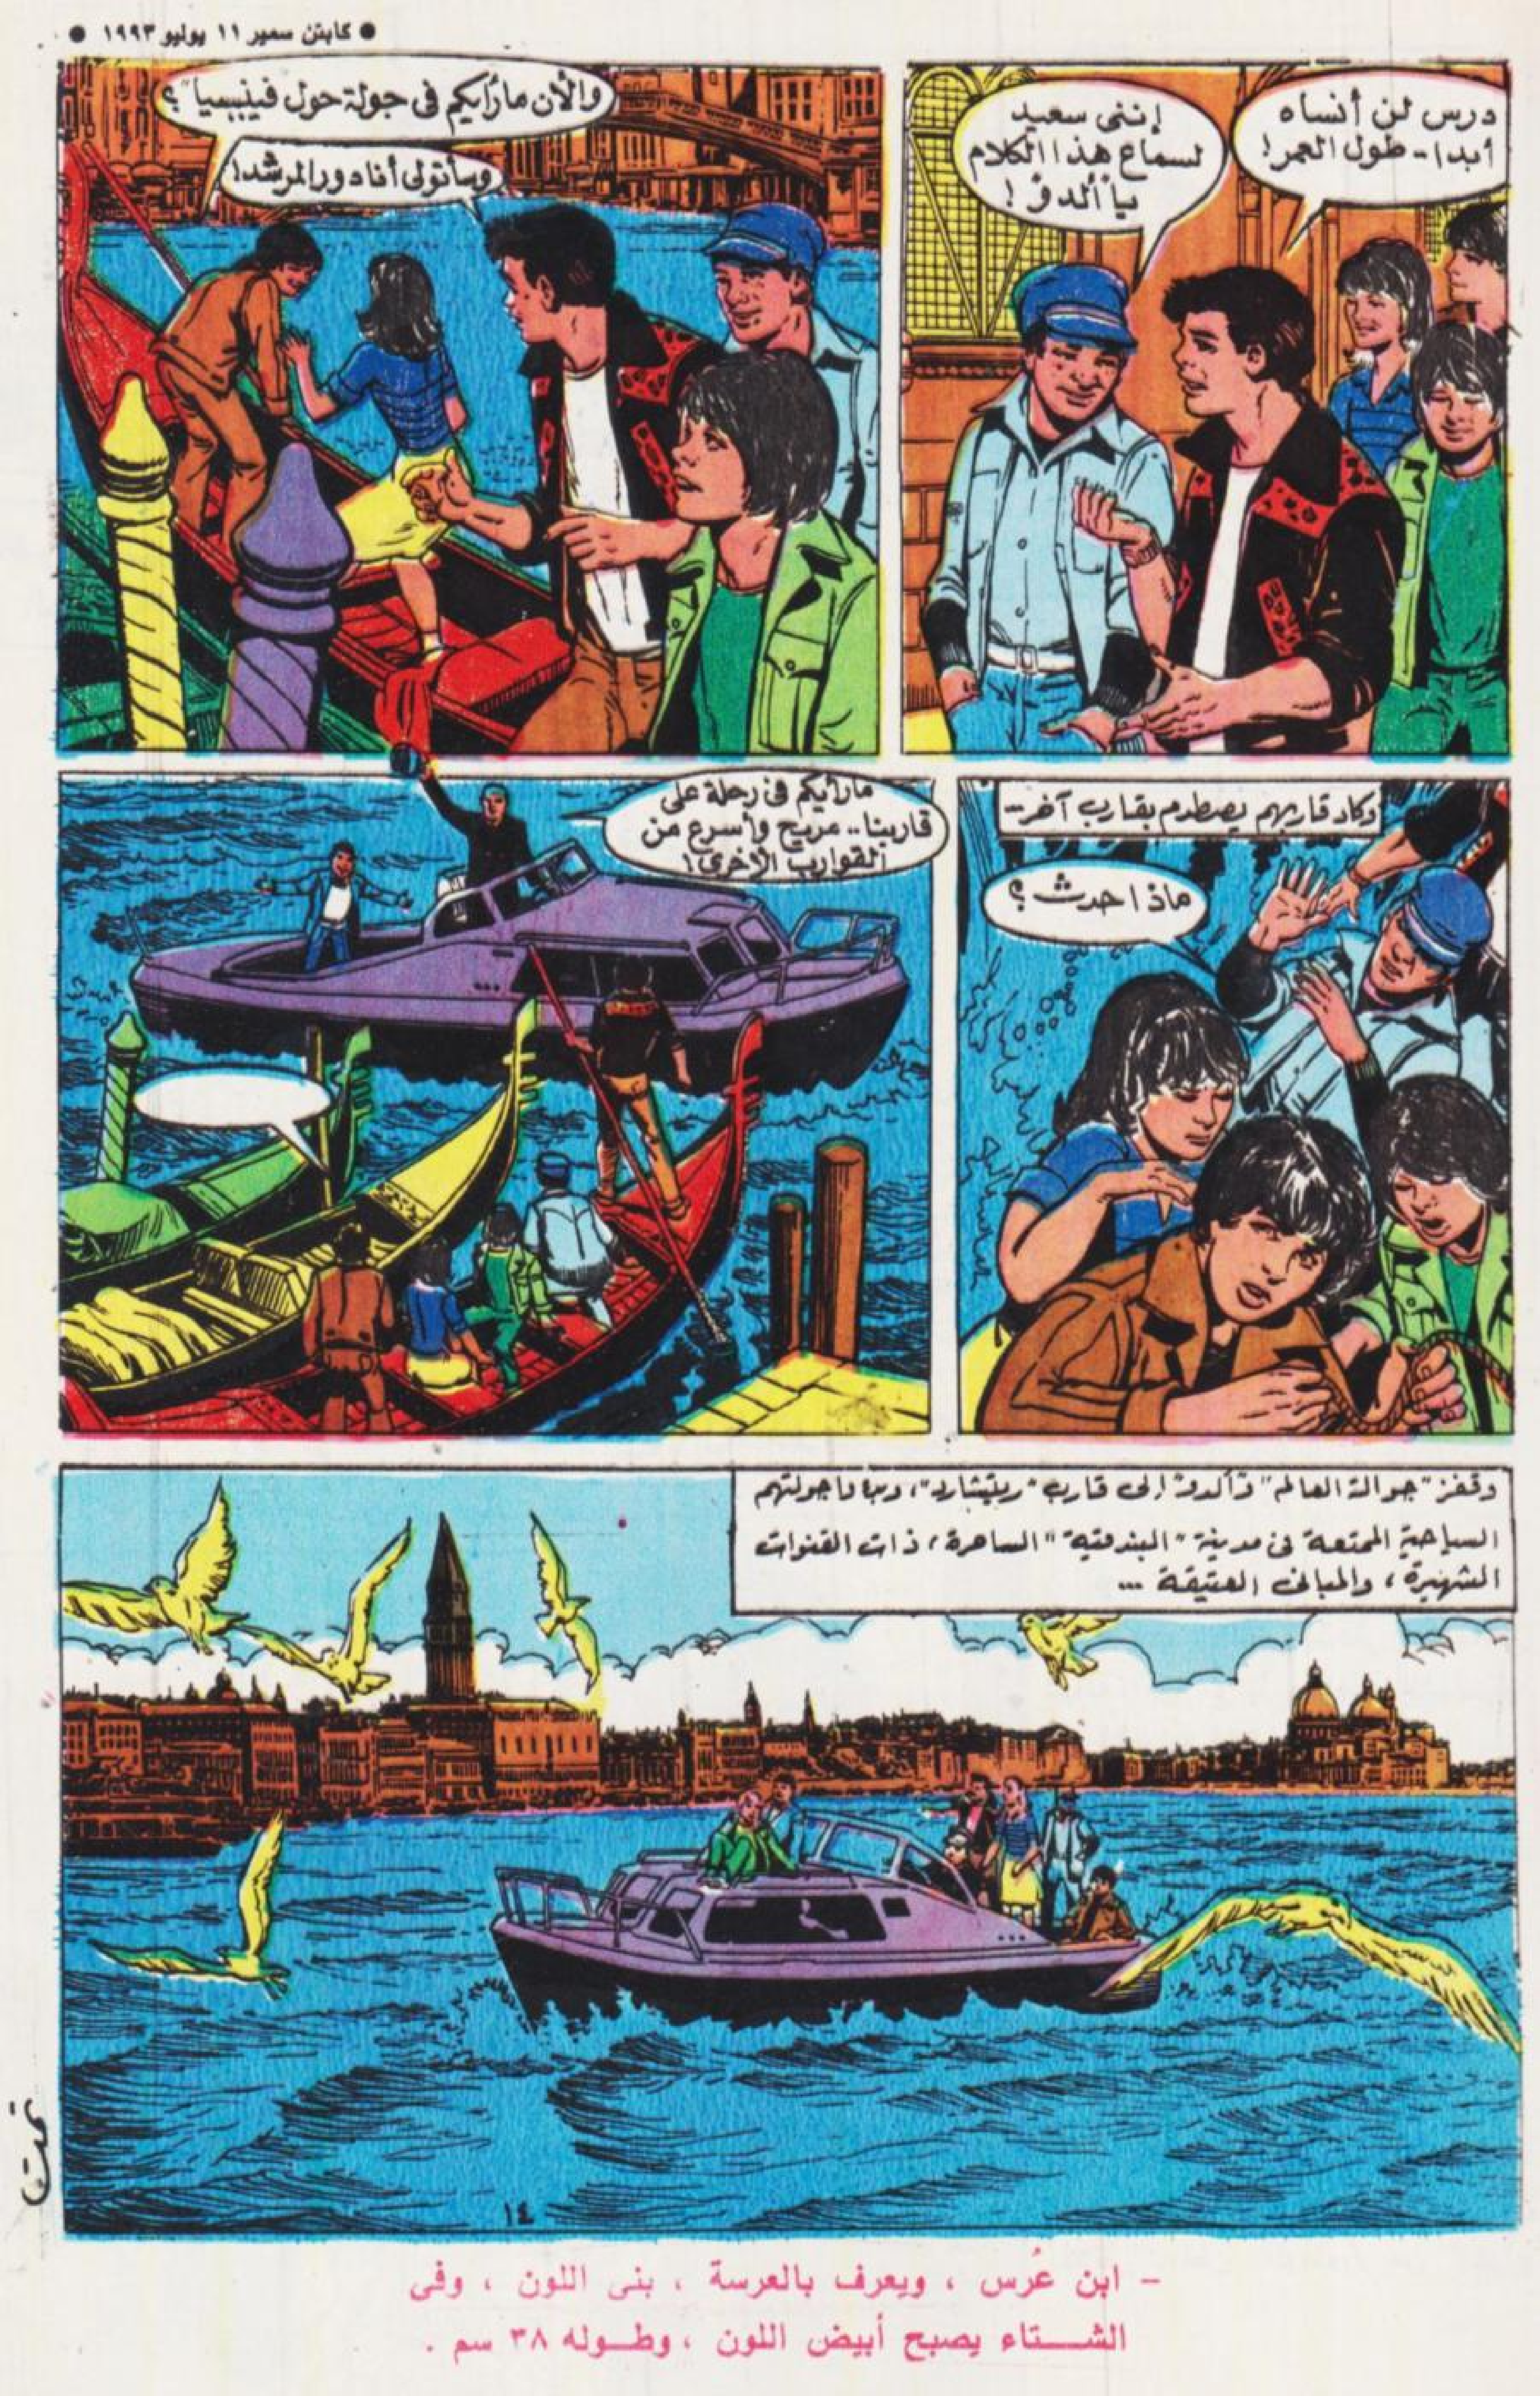 ● كابتن سمير ١١ يوليو ١٩٩٣ ●
درس لن أنساه
أبدا - طول العمر!
إننى سعيد
لسماع هذا الكلام
يا "ألدو"!
والآن مارأيكم فى جولة حول "فينيسيا"؟
وسأتولى أنا دور المرشد!
وكاد قاربهم يصطدم بقارب آخر..
ماذا حدث؟
مارأيكم فى رحلة على
قاربنا.. مريح وأسرع من
القوارب الأخرى!
وقفز "جوالة العالم" و"ألدو" إلى قارب "ريتشارد"، وبدءوا جولتهم
السياحية الممتعة فى مدينة "البندقية" الساحرة، ذات القنوات
الشهيرة، والمبانى العتيقة ...
١٤
تمت
- ابن عُرس ، ويعرف بالعرسة ، بنى اللون ، وفى
الشـتاء يصبح أبيض اللون ، وطـوله ٣٨ سم .